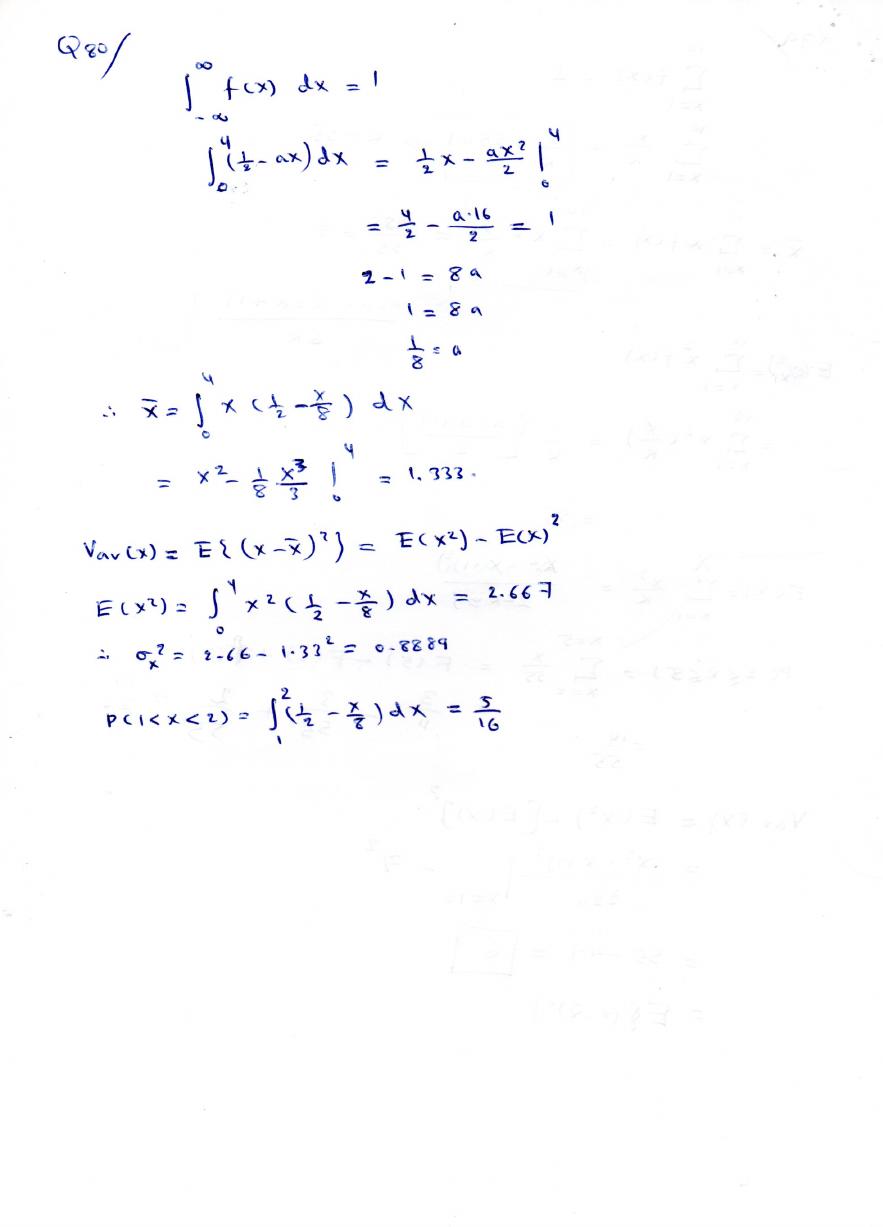 Q80/
∫_{-∞}^{∞} f(x) dx = 1
∫_0^4 (1/2 - ax) dx = 1/2 x - ax²/2 |_0^4
= 4/2 - a·16/2 = 1
2 - 1 = 8a
1 = 8a
1/8 = a
∴ x̄ = ∫_0^4 x (1/2 - x/8) dx
= x² - 1/8 · x³/3 |_0^4 = 1.333.
Var(x) = E{(x-x̄)²} = E(x²) - E(x)²
E(x²) = ∫_0^4 x² (1/2 - x/8) dx = 2.667
∴ σ_x² = 2.66 - 1.33² = 0.8889
P(1<x<2) = ∫_1^2 (1/2 - x/8) dx = 5/16